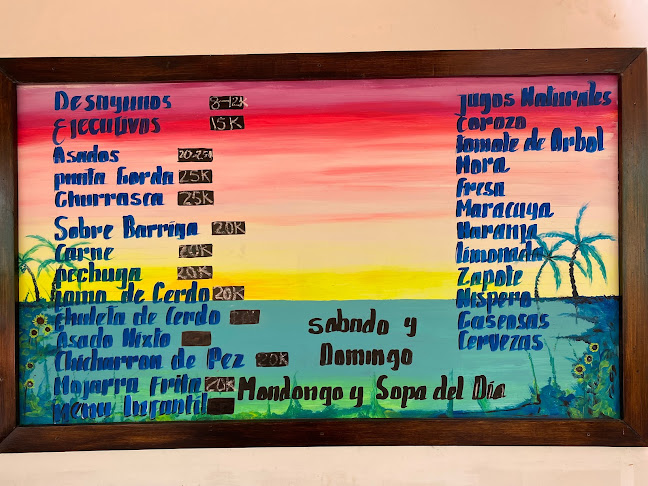 Desayunos 8-12K
Ejecutivos 15K
Asados
punta Gorda 25K
Churrasca 25K
Sobre Barriga 20K
Carne 20K
pechuga 20K
Lomo de Cerdo 20K
Chuleta de Cerdo
Asado Mixto
Chicharron de Pez 20K
Mojarra Frita 20K
Menu Infantil
Sabado y
Domingo
Mondongo y Sopa del Dia
Jugos Naturales
Corozo
Tomate de Arbol
Mora
Fresa
Maracuya
Naranja
Limonada
Zapote
Nispero
Gaseosas
Cervezas